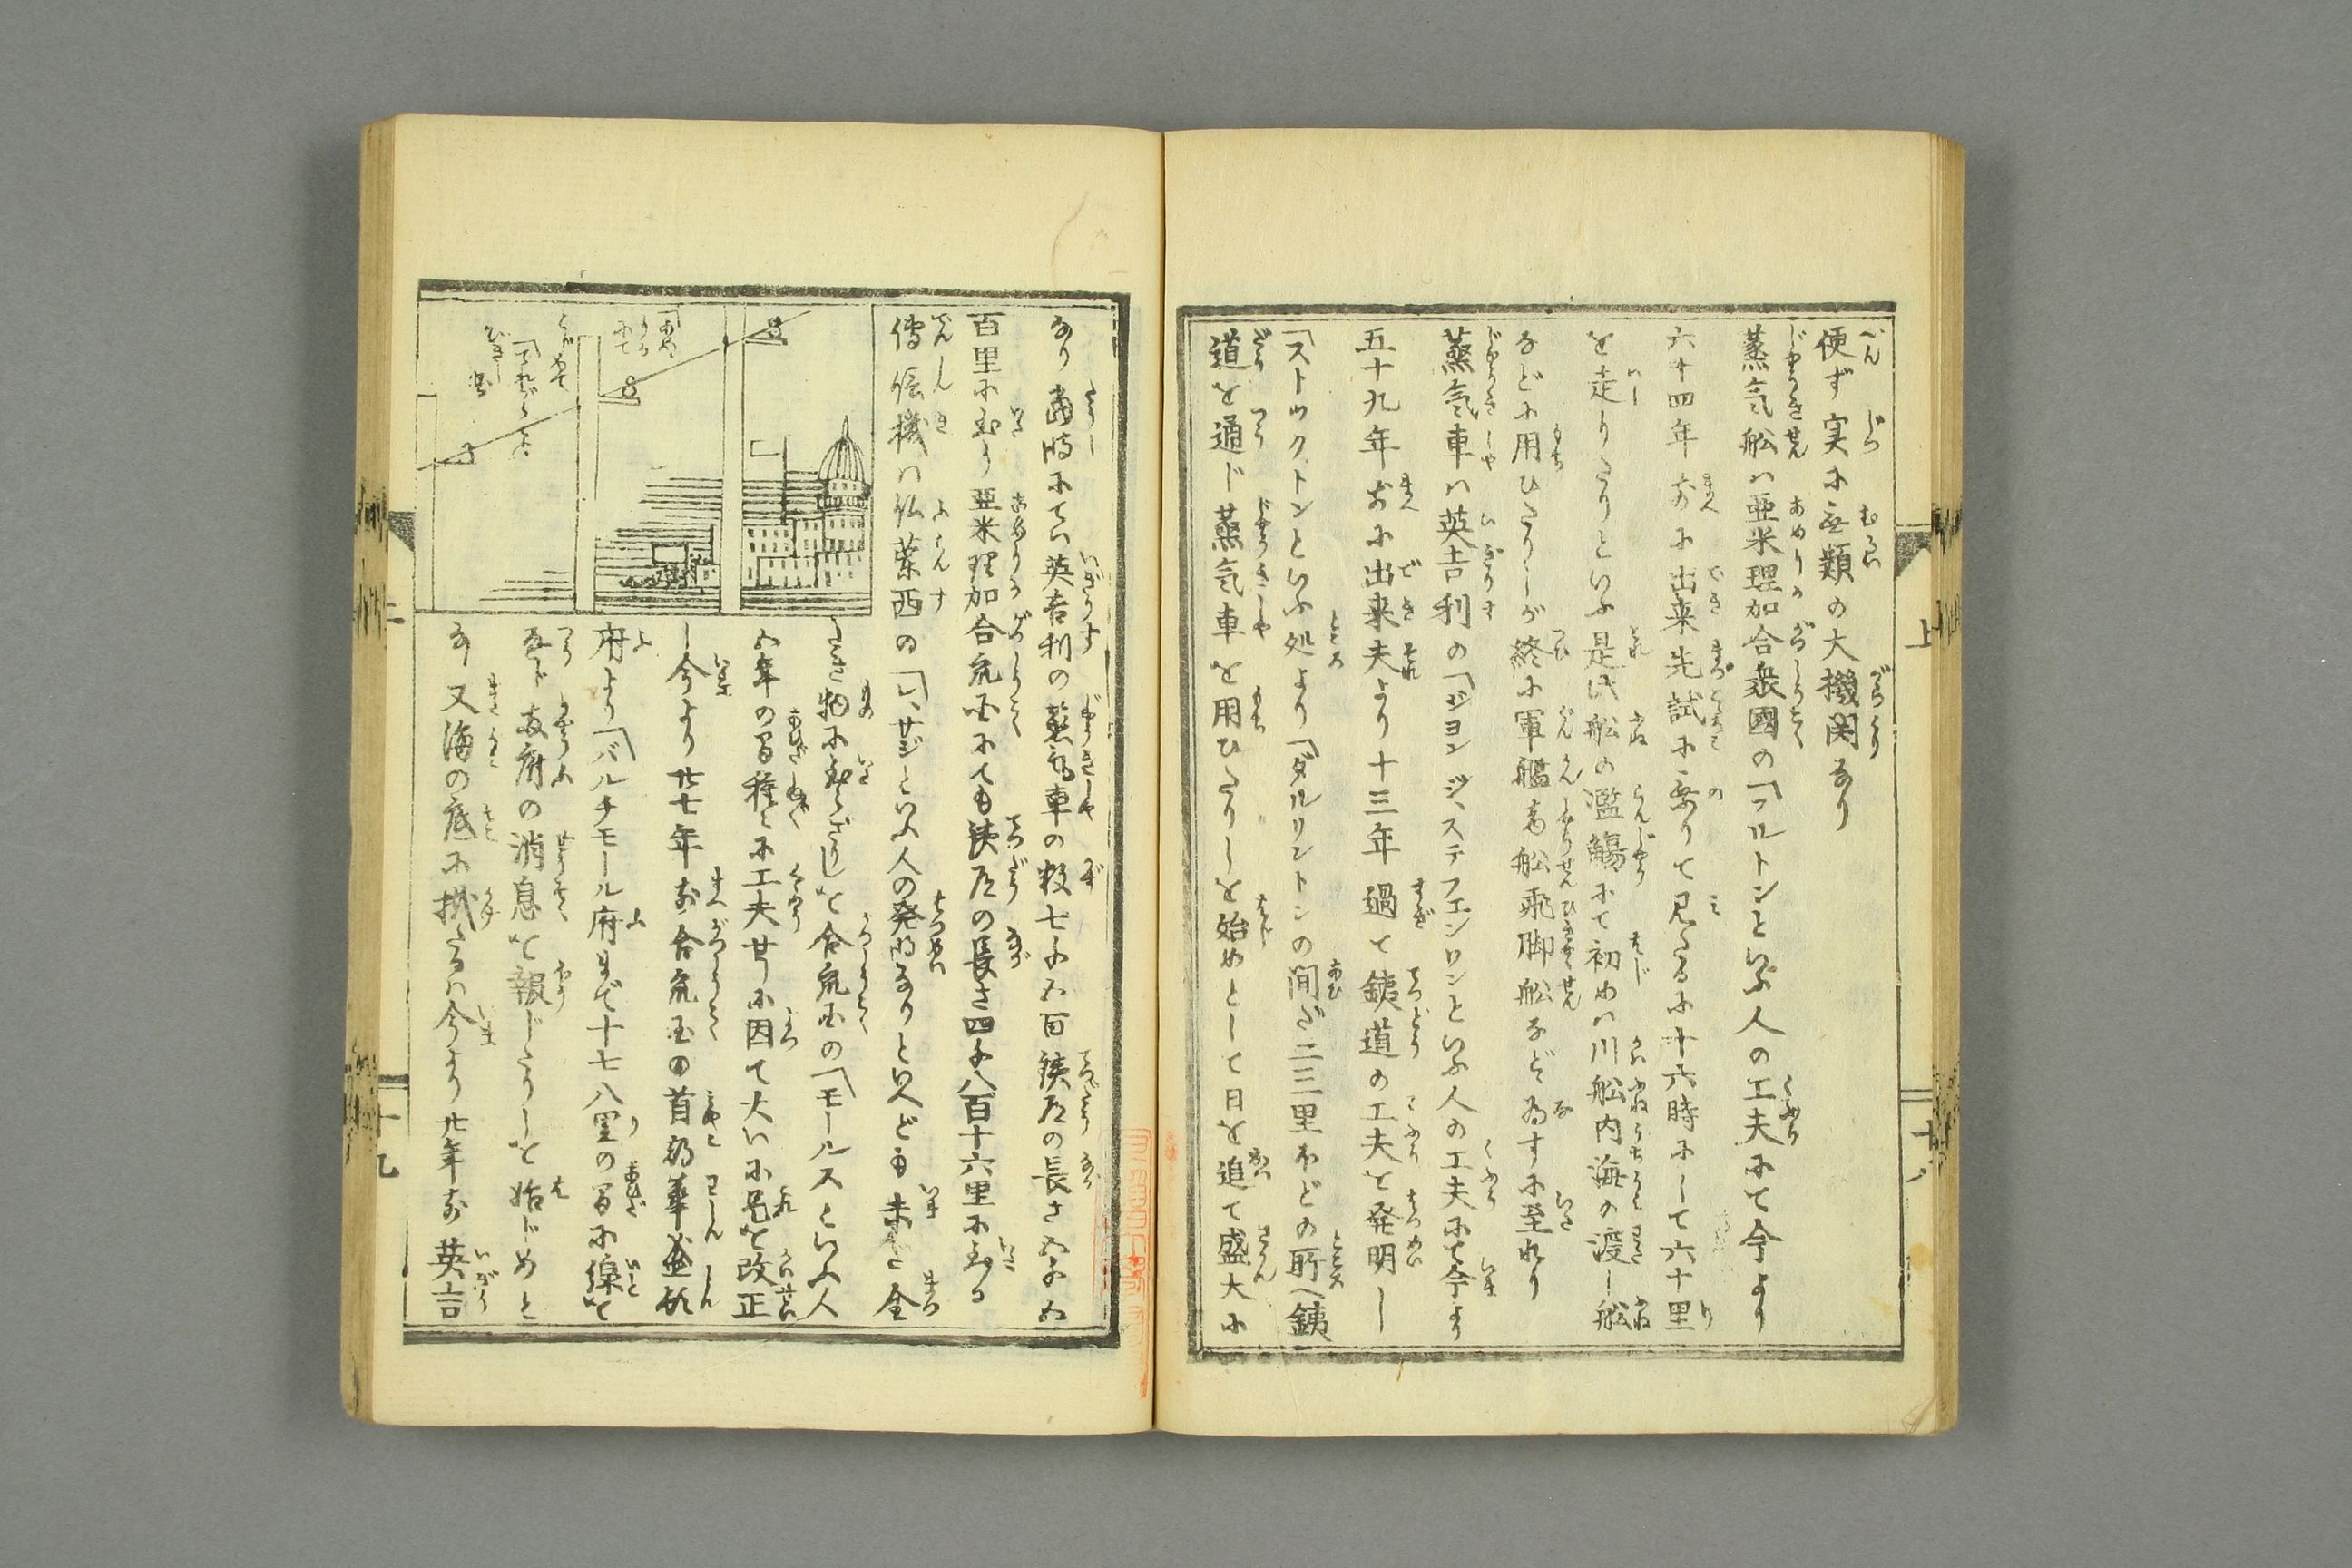 便ず実に無類の大機関なり
蒸気舩ハ亜米理加合衆國の「フルトンといふ人の工夫にて今より
六十四年前に出来先試に乗りて見たるに十六時にして六十里
を走りたりといふ是此舩の濫觴にて初めハ川舩内海の渡し舩
などに用ひたりしが終に軍艦商舩飛脚舩などを為すに至れり
蒸気車ハ英吉利の「ジヨンジ、ステフエンソンといふ人の工夫にて今より
五十九年前に出来夫より十三年過て鉄道の工夫を発明し
「ストックトンといふ処より「ダルリントンの間だ二三里ほどの所へ鉄
道を通ド蒸気車を用ひたりしを始めとして日を追て盛大に
なり當時にてハ英吉利の蒸気車の数七千五百鉄道の長さ五千五
百里に到り亜米理加合衆国にても鉄道の長さ四千八百十六里に到る
傳信機ハ仏蘭西の「レ、サジといふ人の発明なりといへども未だ全
たき物に到らざりしを合衆国の「モールスといふ人
五年の間種々に工夫せりに因て大いに是を改正
し今より廿七年前合衆国の首都華盛頓
府より「バルチモール府まで十七八里の間に線を
通ド両府の消息を報ドたりしを始ドめと
す又海の底に掛たるハ今より廿年前英吉
上
十八
十九